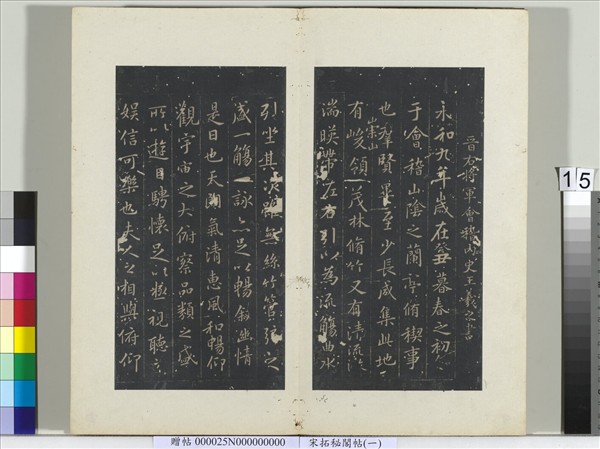 晉右將軍會稽內史王羲之書
永和九年歲在癸丑暮春之初
于會稽山陰之蘭亭脩稧事
也羣賢畢至少長咸集此地
有崇山峻領茂林脩竹又有清流
湍暎帶左右引以為流觴曲水
引坐其次雖無絲竹管弦之
盛一觴一詠亦足以暢敘幽情
是日也天朗氣清惠風和暢仰
觀宇宙之大俯察品類之盛
所以遊目騁懷足以極視聽之
娛信可樂也夫人之相與俯仰
15
贈帖 000025N000000000 宋拓秘閣帖(一)